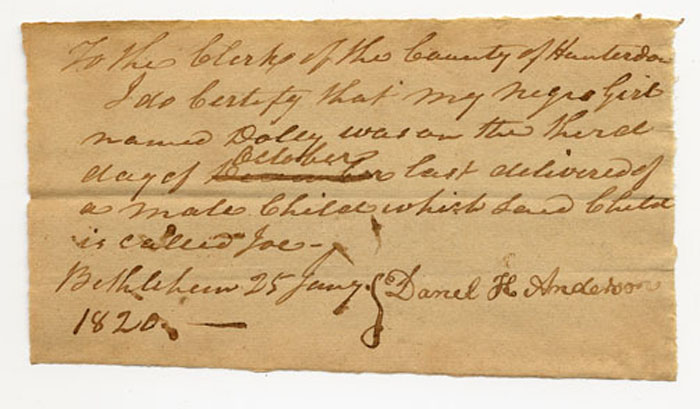 To the Clerk of the County of Hunterdon
I do Certify that my Negro Girl
named Dolly was on the therd
day of October last delivered of
a male Child which Said Child
is called Joe –
Bethlehem 25 Jany
1820. —
Danel H Anderson